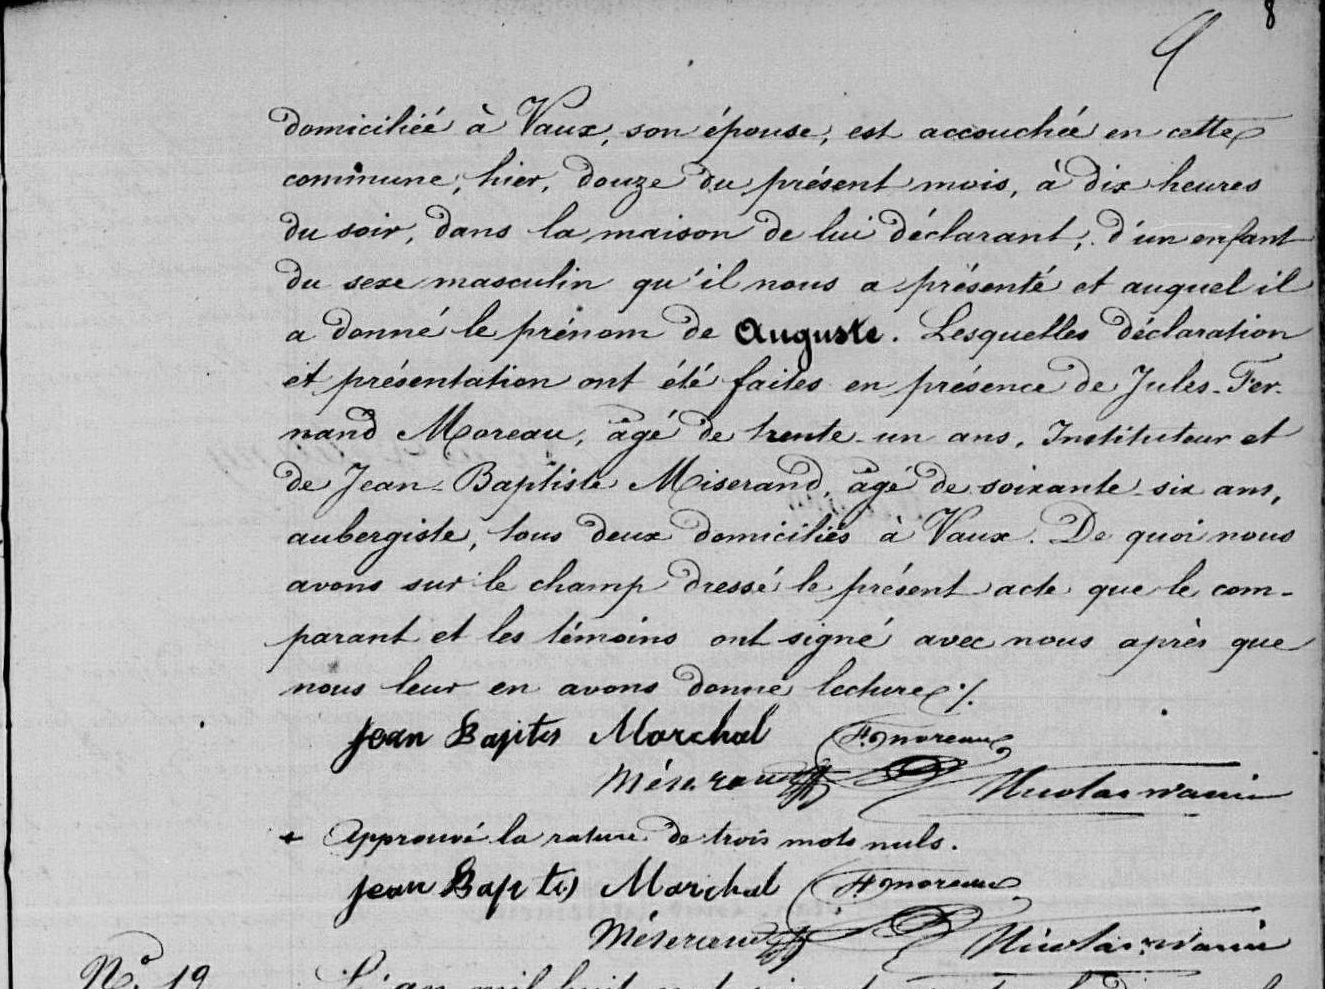 8
9
domiciliée à Vaux, son épouse, est accouchée en cette
commune, hier, douze du présent mois, à dix heures
du soir, dans la maison de lui déclarant, d'un enfant
du sexe masculin qu'il nous a présenté et auquel il
a donné le prénom de Auguste. Lesquelles déclaration
et présentation ont été faites en présence de Jules-Fer-
nand Moreau, âgé de trente-un ans, Instituteur et
de Jean-Baptiste Miserand, âgé de soixante-six ans,
aubergiste, tous deux domiciliés à Vaux. De quoi nous
avons sur le champ dressé le présent acte que le com-
parant et les témoins ont signé avec nous après que
nous leur en avons donné lecture ./.
Jean Baptis Marchal F. moreau
Nicolas
+ Approuvé la rature de trois mots nuls.
Jean Baptis Marchal F. moreau
Nicolas
N.° 19 L'an mil huit cent